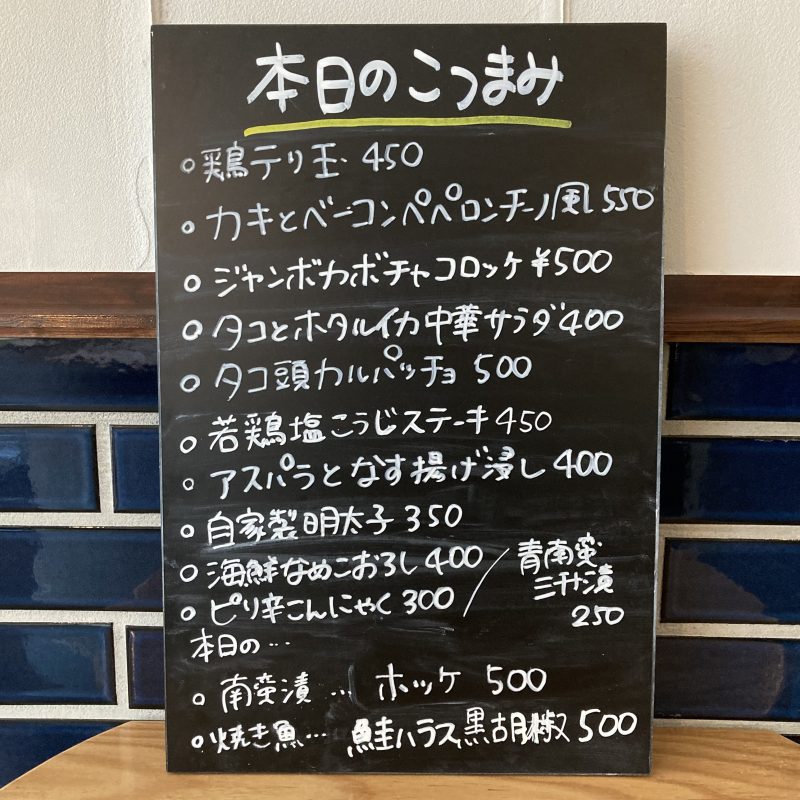 本日のこつまみ
○鶏テリ玉 450
○カキとベーコンペペロンチーノ風 550
○ジャンボカボチャコロッケ ¥500
○タコとホタルイカ中華サラダ 400
○タコ頭カルパッチョ 500
○若鶏塩こうじステーキ 450
○アスパラとなす揚げ浸し 400
○自家製明太子 350
○海鮮なめこおろし 400
○ピリ辛こんにゃく 300
/青南蛮
三升漬
250
本日の…
○南蛮漬… ホッケ 500
○焼き魚… 鮭ハラス黒胡椒 500